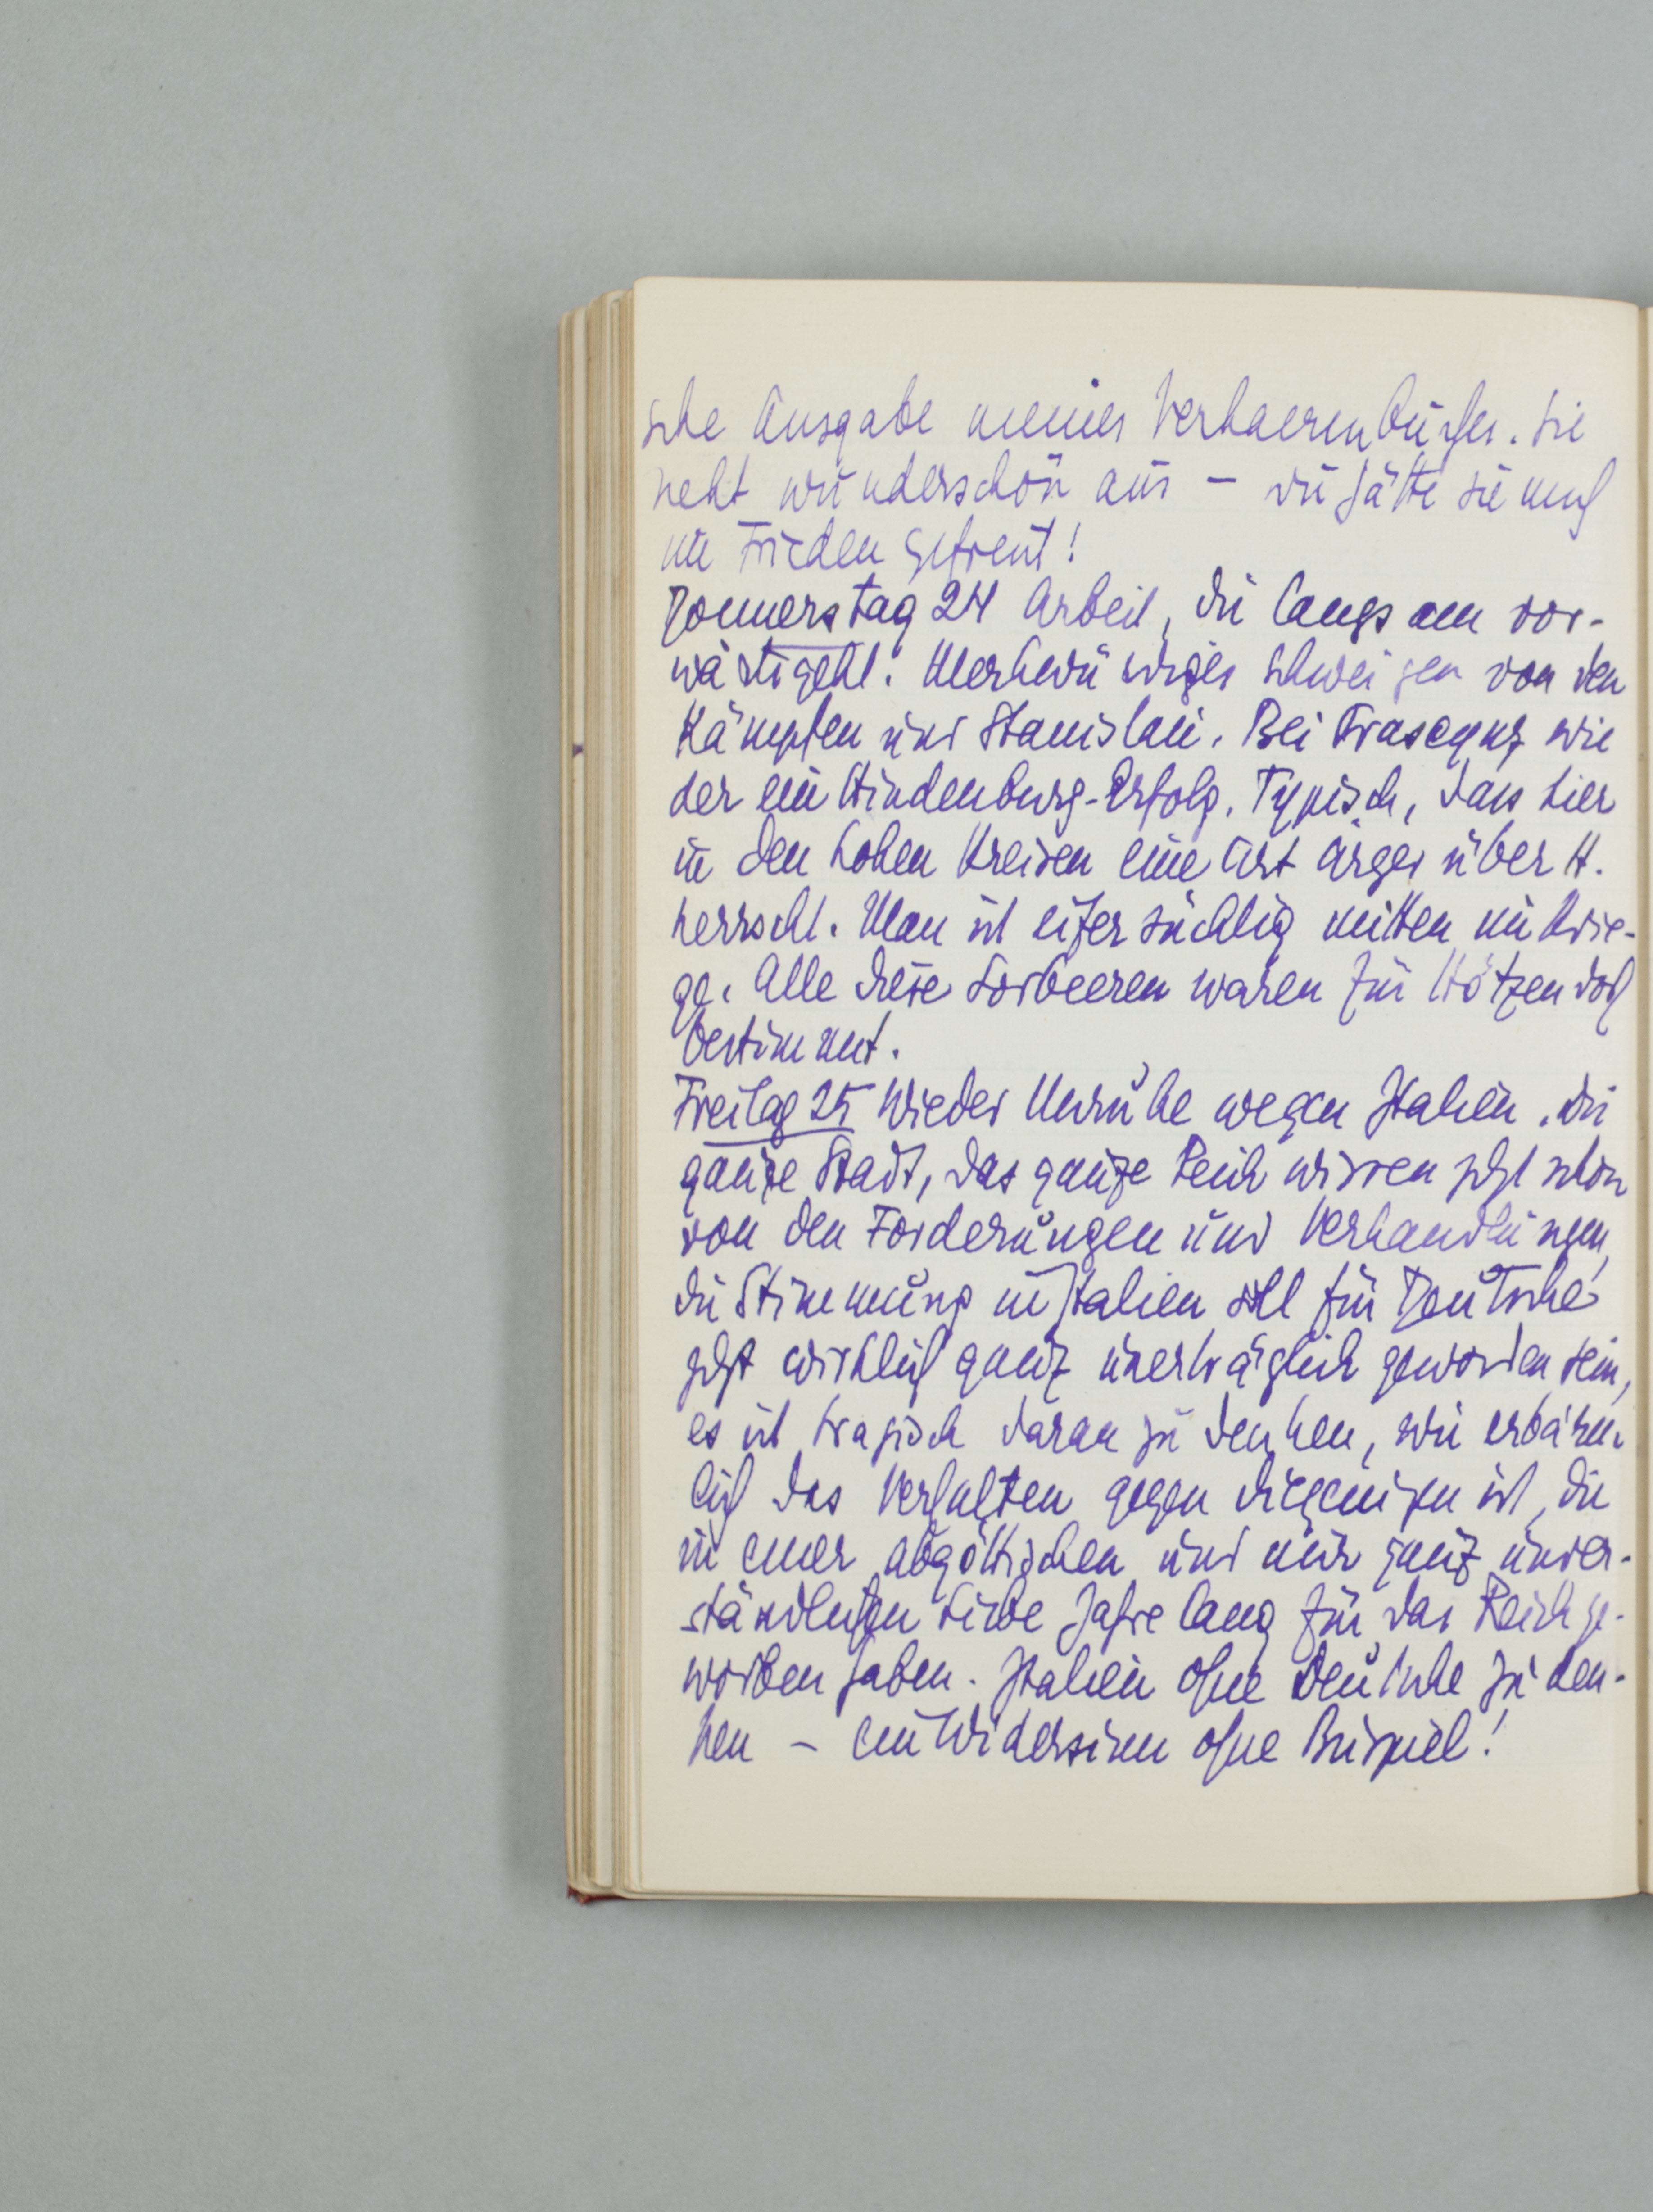 sche Ausgabe meines Verhaerenbuches. Sie
sieht wunderschön aus – wie hätte sie mich
im Frieden gefreut!
Donnerstag 24 Arbeit, die langsam vor-
wärtsgeht. Merkwürdiges Schweigen von den
Kämpfen um Stanislau. Bei Prasnysz wie
der ein Hindenburg-Erfolg. Typisch, dass hier
in den hohen Kreisen eine Art Ärger über H.
herrscht. Man ist eifersüchtig mitten im Krie-
ge. Alle diese Lorbeeren waren für Hötzendorf
bestimmt.
Freitag 25 Wieder Unruhe wegen Italien. Die
ganze Stadt, das ganze Reich wissen jetzt schon
von den Forderungen und Verhandlungen,
die Stimmung in Italien soll für Deutsche
jetzt wirklich ganz unerträglich geworden sein,
es ist tragisch daran zu denken, wie erbärm-
lich das Verhalten gegen diejenigen ist, die
in einer abgöttischen und mir ganz unver-
ständlichen Liebe Jahre lang für das Reich ge-
worben haben. Italien ohne Deutsche zu den-
ken – ein Widersinn ohne Beispiel!